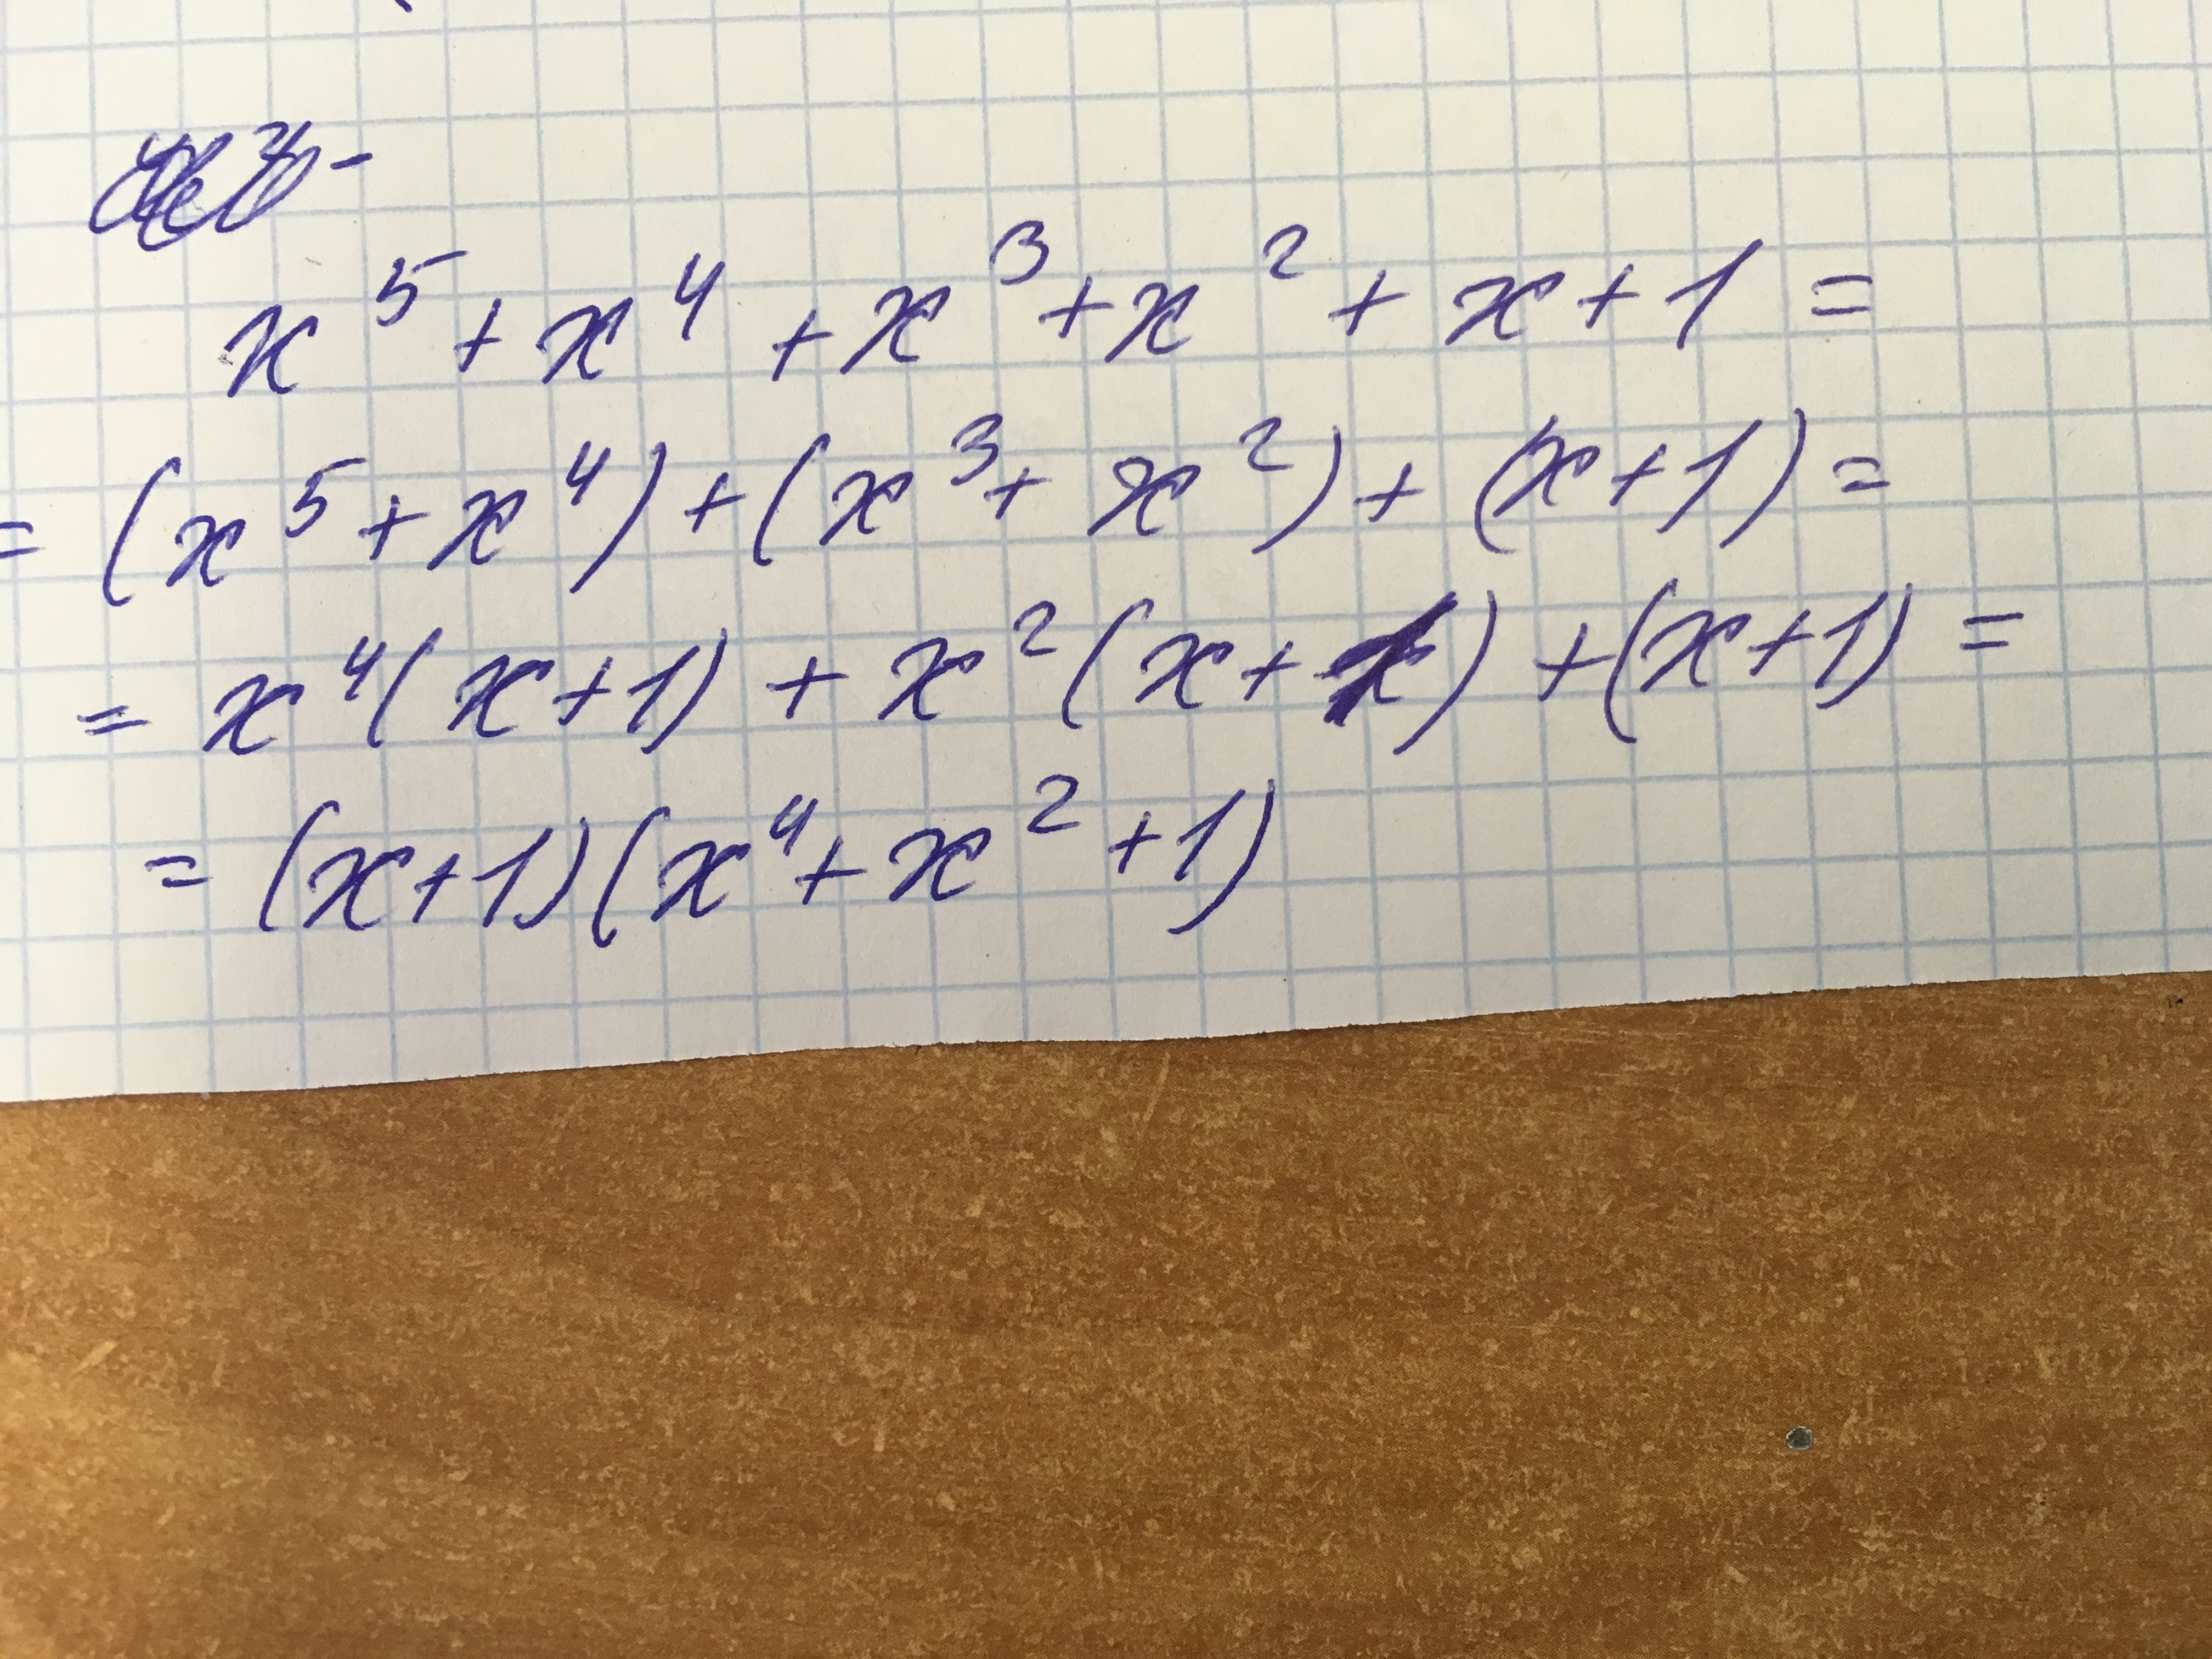 x⁵ + x⁴ + x³ + x² + x + 1 =
= (x⁵ + x⁴) + (x³ + x²) + (x + 1) =
= x⁴(x + 1) + x²(x + 1) + (x + 1) =
= (x + 1)(x⁴ + x² + 1)